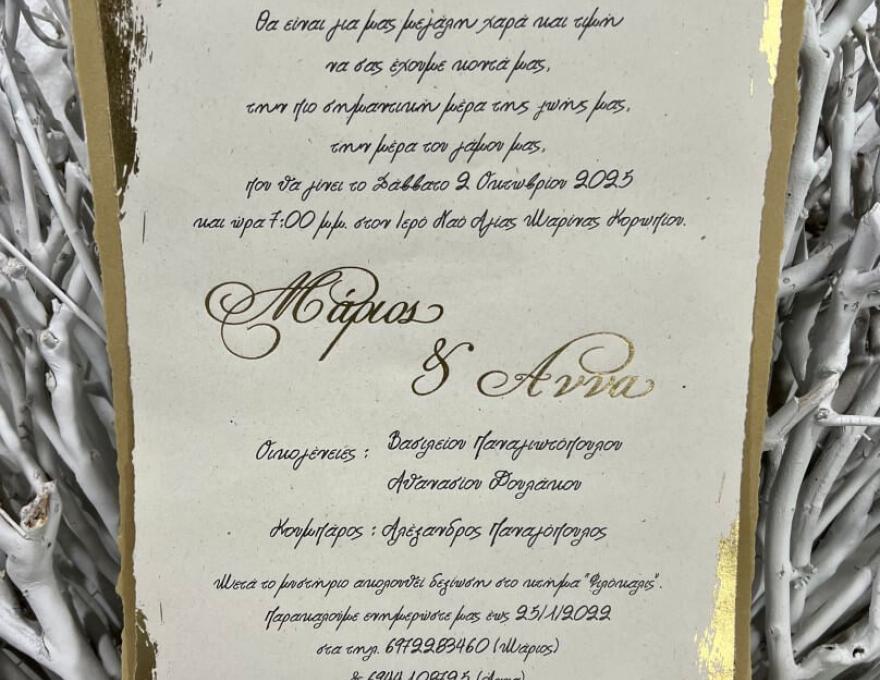 Θα είναι για μας μεγάλη χαρά και τιμή
να σας έχουμε κοντά μας,
την πιο σημαντική μέρα της ζωής μας,
την μέρα του γάμου μας,
που θα γίνει το Σάββατο 2 Οκτωβρίου 2025
και ώρα 7:00 μ.μ. στον Ιερό Ναό Αγίας Μαρίνας Κορωπίου.
Μάριος
& Αννα
Οικογένειές : Βασιλείου Παναγιωτόπουλου
Αθανασίου Φουλάκου
Κουμπάρος : Αλέξανδρος Παναγόπουλος
Μετά το μυστήριο ακολουθεί δεξίωση στο κτήμα "Φιλόκαλις".
Παρακαλούμε ενημερώστε μας έως 25/1/2022
στα τηλ. 6972283460 (Μάριος)